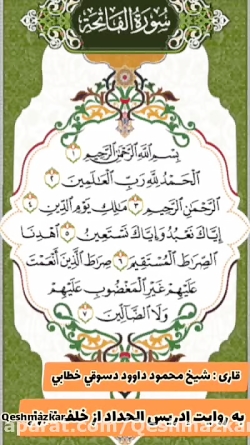 سُورَةُ الفَاتِحَةِ
بِسْمِ اللَّهِ الرَّحْمَٰنِ الرَّحِيمِ ١
الْحَمْدُ لِلَّهِ رَبِّ الْعَالَمِينَ ٢
الرَّحْمَٰنِ الرَّحِيمِ ٣ مَالِكِ يَوْمِ الدِّينِ ٤
إِيَّاكَ نَعْبُدُ وَإِيَّاكَ نَسْتَعِينُ ٥ اهْدِنَا
الصِّرَاطَ الْمُسْتَقِيمَ ٦ صِرَاطَ الَّذِينَ أَنْعَمْتَ
عَلَيْهِمْ غَيْرِ الْمَغْضُوبِ عَلَيْهِمْ
وَلَا الضَّالِّينَ ٧
قاری : شیخ محمود داوود دسوقي خطابي
به روایت إدریس الحداد از خلف
Qeshmazkar
aparat.com/Qeshmazkar